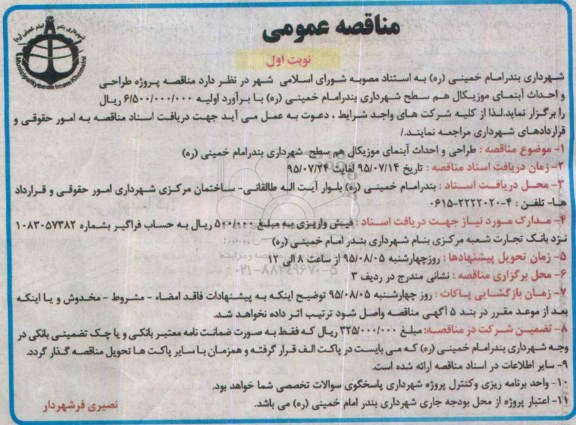 مناقصه عمومی
نوبت اول
شهرداری بندرامام خمینی (ره) به استناد مصوبه شورای اسلامی شهر در نظر دارد مناقصه پروژه طراحی
و احداث آبنمای موزیکال هم سطح شهرداری بندرامام خمینی (ره) با برآورد اولیه ۶/۵۰۰/۰۰۰/۰۰۰ ریال
را برگزار نماید.لذا از کلیه شرکت های واجد شرایط ، دعوت به عمل می آید جهت دریافت اسناد مناقصه به امور حقوقی و
قراردادهای شهرداری مراجعه نمایند./
۱- موضوع مناقصه : طراحی و احداث آبنمای موزیکال هم سطح شهرداری بندرامام خمینی (ره)
۲- زمان دریافت اسناد مناقصه : تاریخ ۹۵/۰۷/۱۴ لغایت ۹۵/۰۷/۲۴
۳- محل دریافت اسناد : بندرامام خمینی (ره) بلوار آیت اله طالقانی- ساختمان مرکزی شهرداری امور حقوقی و قرارداد
ها- تلفن : ۴-۲۲۲۲۰۲۰-۰۶۱۵
۴- مدارک مورد نیاز جهت دریافت اسناد : فیش واریزی به مبلغ ۵۰۰/۰۰۰ ریال به حساب فراگیر بشماره ۱۰۸۳۰۵۷۳۸۲
نزد بانک تجارت شعبه مرکزی بنام شهرداری بندر امام خمینی (ره)
۵- زمان تحویل پیشنهادها : روزچهارشنبه ۹۵/۰۸/۰۵ از ساعت ۸ الی ۱۲
۶- محل برگزاری مناقصه : نشانی مندرج در ردیف ۳
۷- زمان بازگشایی پاکات : روز چهارشنبه ۹۵/۰۸/۰۵ توضیح اینکه به پیشنهادات فاقد امضاء - مشروط - مخدوش و یا اینکه
بعد از موعد مقرر در بند ۵ آگهی مناقصه واصل شود ترتیب اثر داده نخواهد شد.
۸- تضمین شرکت در مناقصه: مبلغ ۳۲۵/۰۰۰/۰۰۰ ریال که فقط به صورت ضمانت نامه معتبر بانکی و یا چک تضمینی بانکی در
وجه شهرداری بندرامام خمینی (ره) که می بایست در پاکت الف قرار گرفته و همزمان با سایر پاکت ها تحویل مناقصه گذار گردد.
۹- سایر اطلاعات در اسناد مناقصه ارائه شده است.
۱۰- واحد برنامه ریزی و کنترل پروژه شهرداری پاسخگوی سوالات تخصصی شما خواهد بود.
۱۱- اعتبار پروژه از محل بودجه جاری شهرداری بندر امام خمینی (ره) می باشد.
نصیری فرشهردار